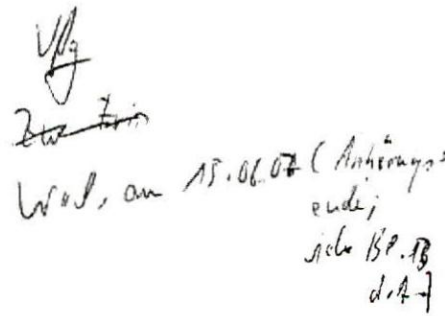 Vfg
Wvl. am 15.06.07 (Anhörungs-
ende;
siehe Bl. 13
d. A.)